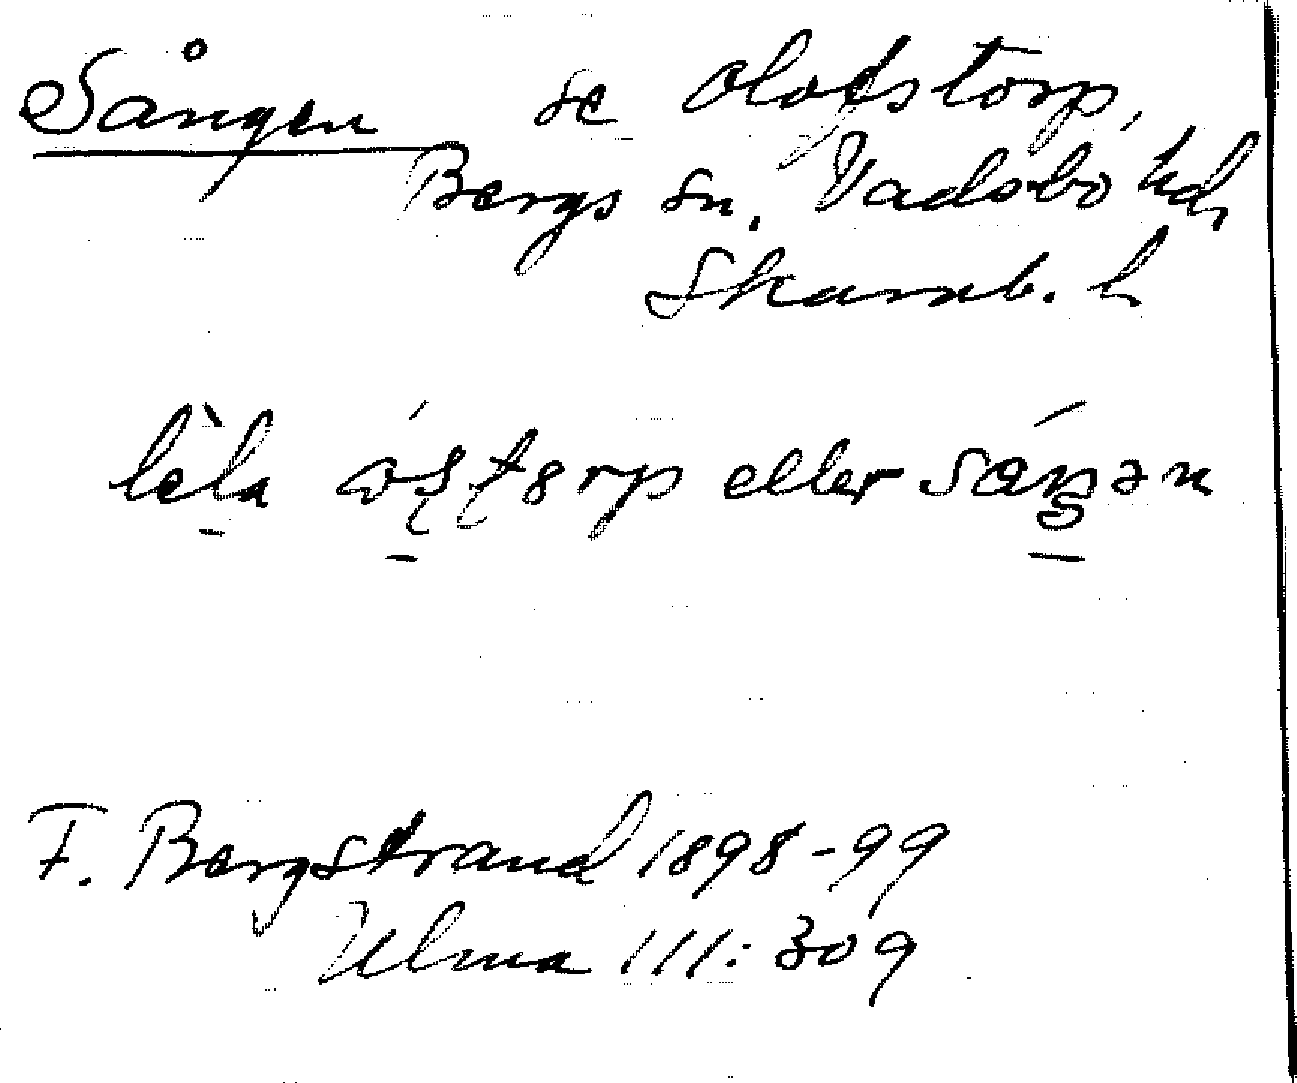 Sången se Olofstorp,
Bergs sn. Vadsbo hd,
Skarab. l
lela eller
F. Bergstrand 1898-99
Ulma 111:309